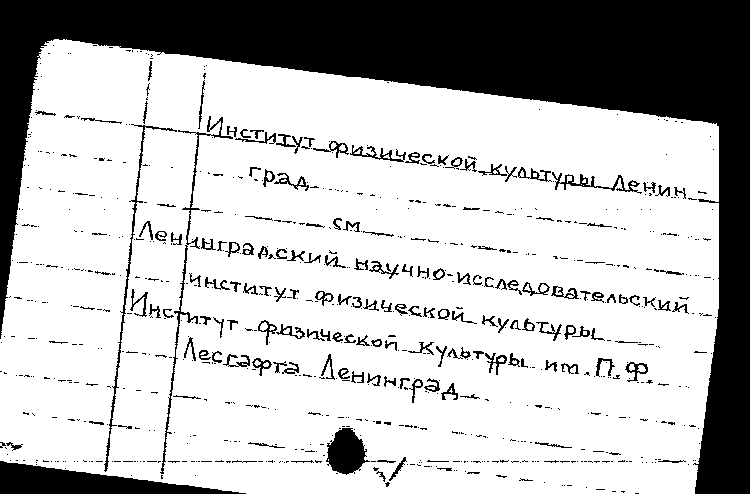 Институт физической культуры Ленин-
град
см
Ленинградский научно-исследовательский
институт физической культуры
Институт физической культуры им. П.Ф.
Лесгафта Ленинград